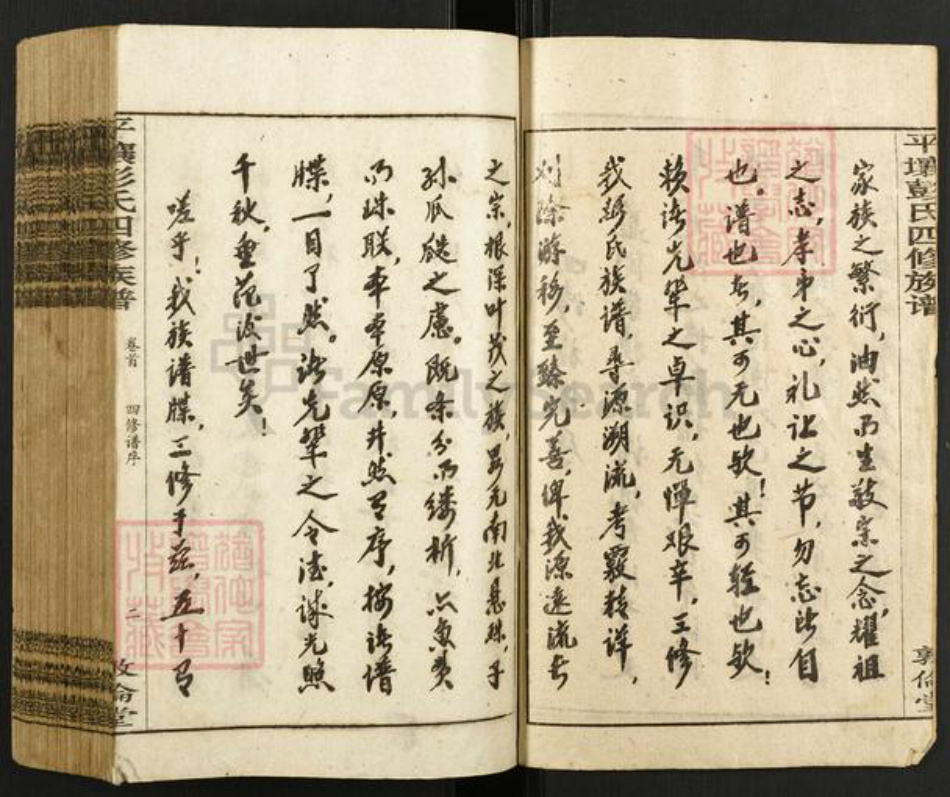 平壤彭氏四修族谱
敦伦堂
家族之繁衍,油然而生敬宗之念,耀祖
之志,孝弟之心,礼让之节,勿忘所自
也。谱也者,其可无也欤!其可轻也欤!
赖诸先辈之卓识,无惮艰辛,三修
我彭氏族谱,寻源溯流,考覈精详,
刈除游移,至臻完善,俾我源远流长
之宗,根深叶茂之族,毋无南北悬殊,子
孙瓜瓞之虑。既条分而缕析,亦鱼贯
而珠联,本本原原,井然有序,按诸谱
牒,一目了然。诸先辈之令德,诚光照
千秋,垂范后世矣!
嗟乎!我族谱牒,三修于兹,五十有
平壤彭氏四修族谱
卷首
四修谱序
二
敦伦堂
FamilySearch